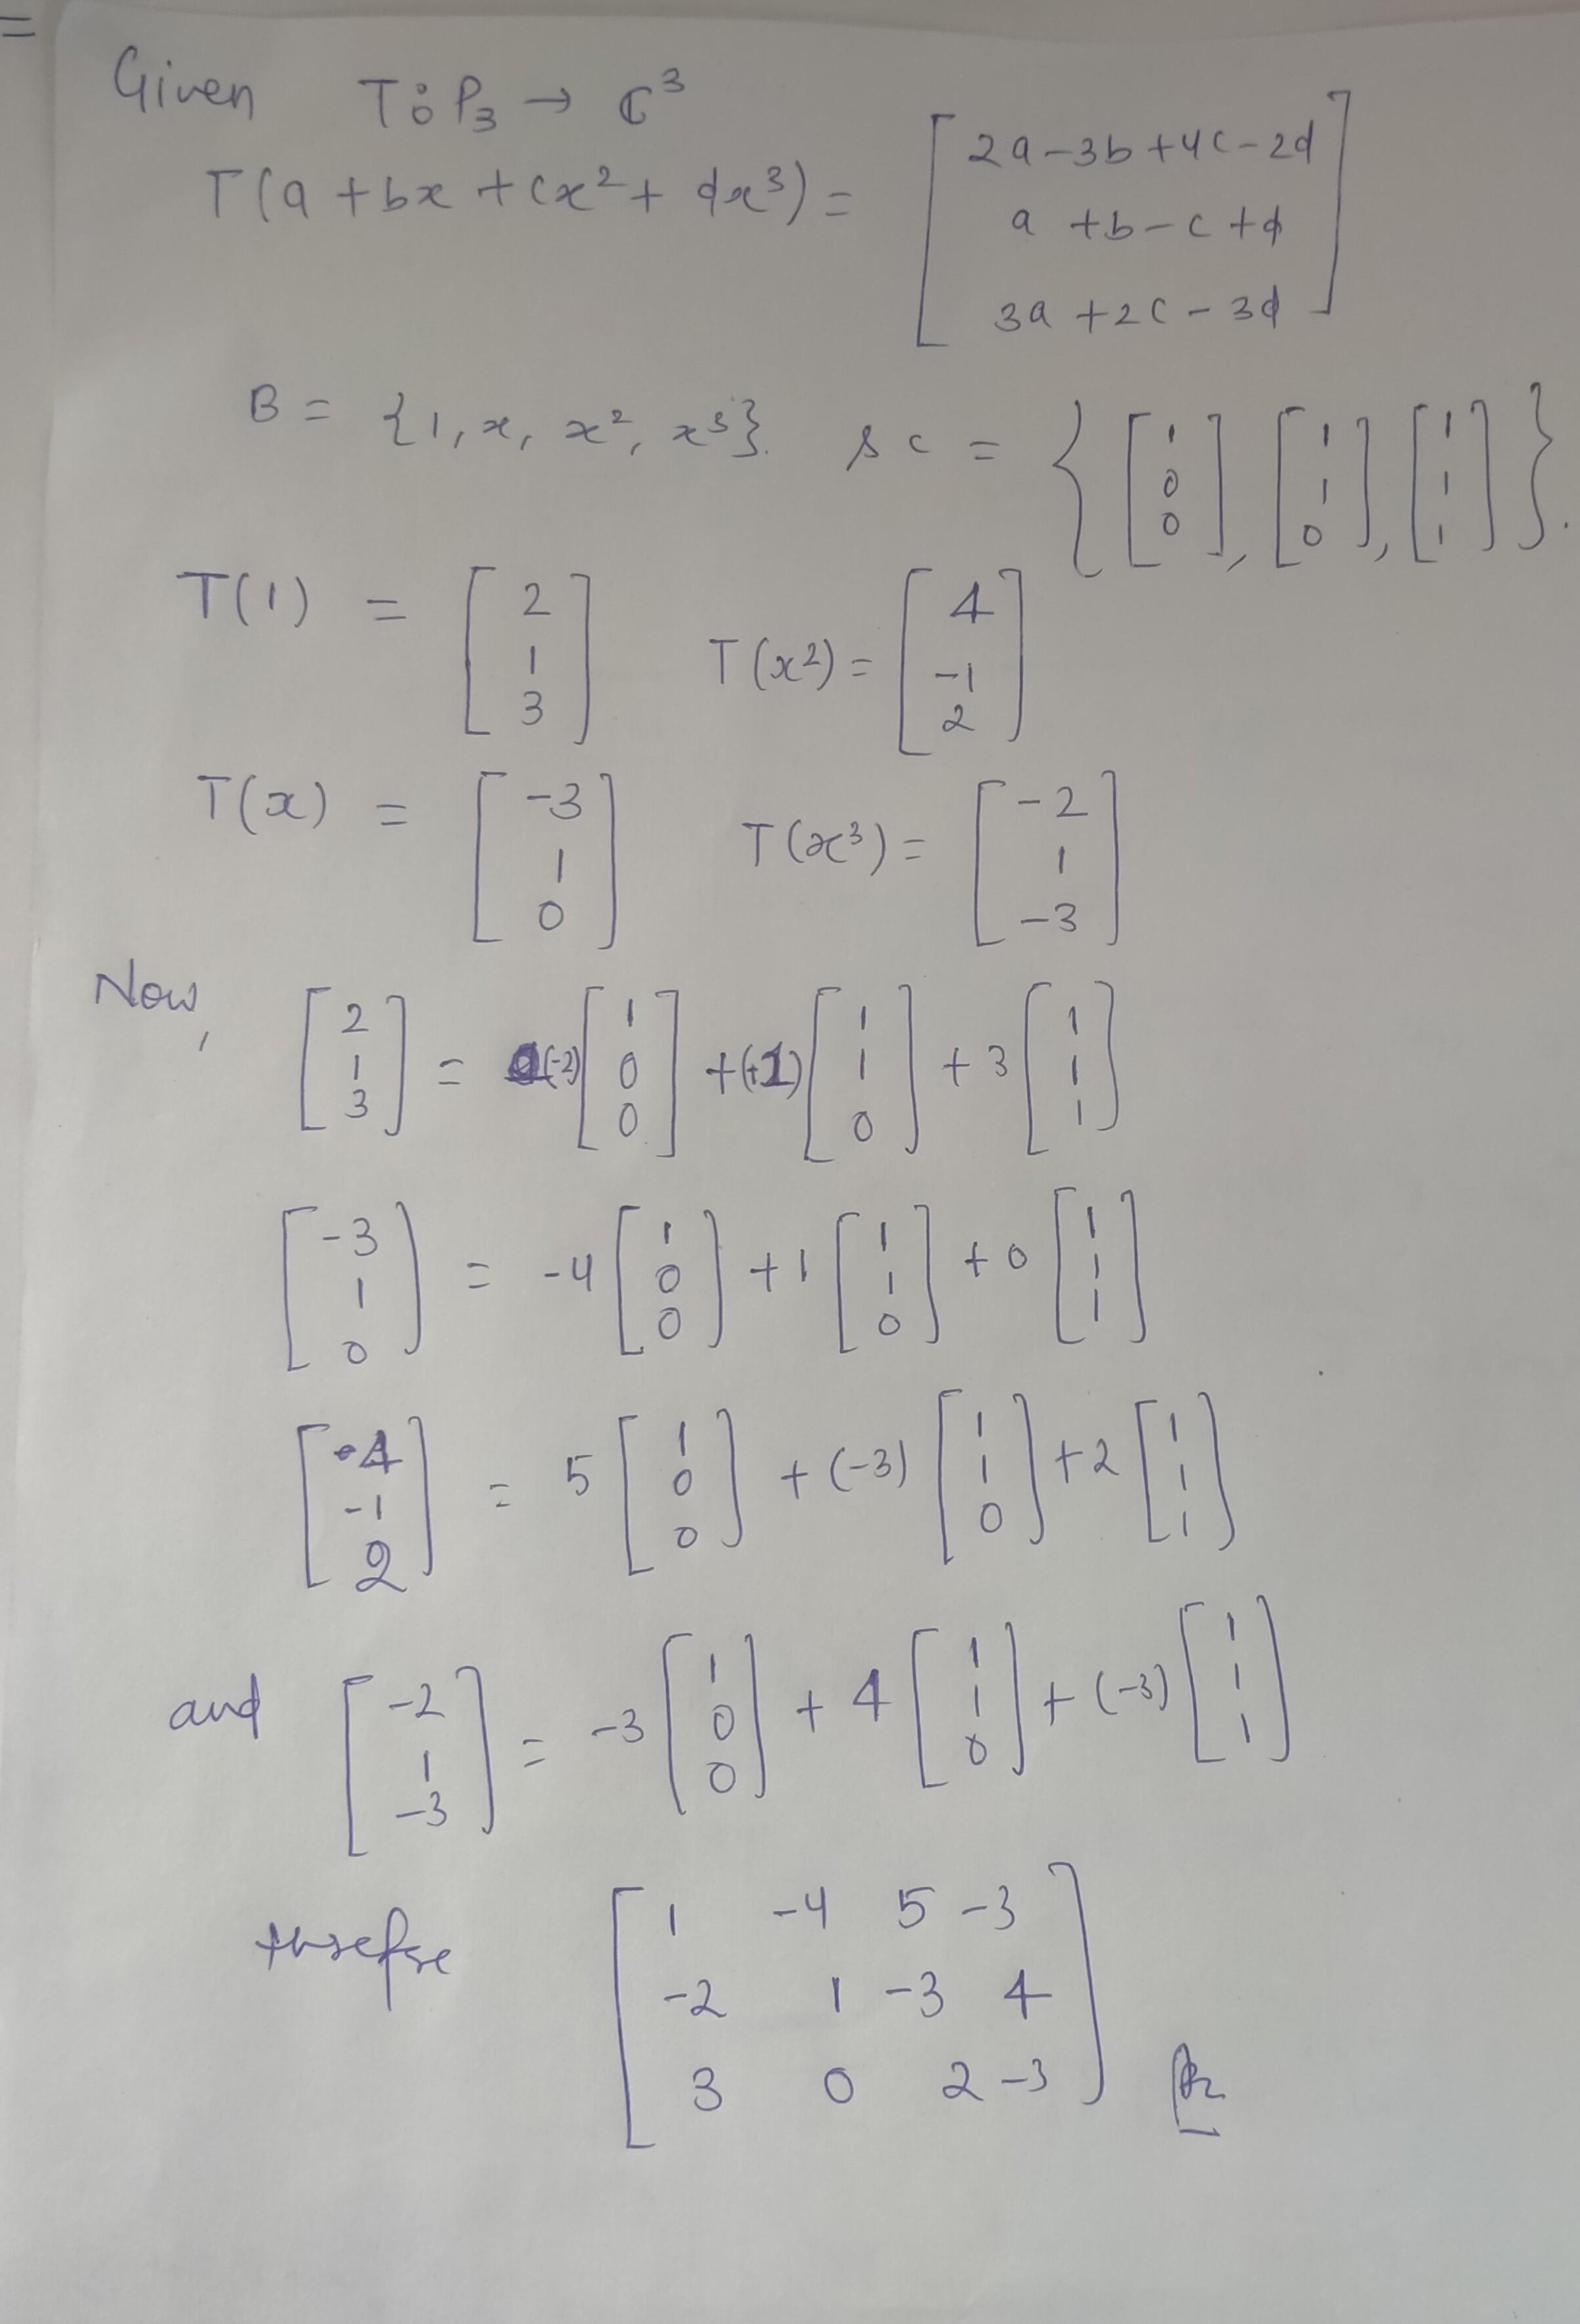 Given T: P₃ → ℂ³
T(a + bx + cx² + dx³) = [2a-3b+4c-2d; a+b-c+d; 3a+2c-3d]
B = {1, x, x², x³}. & C = {[1; 0; 0], [1; 1; 0], [1; 1; 1]}.
T(1) = [2; 1; 3] T(x²) = [4; -1; 2]
T(x) = [-3; 1; 0] T(x³) = [-2; 1; -3]
Now, [2; 1; 3] = (-2)[1; 0; 0] + (+1)[1; 1; 0] + 3[1; 1; 1]
[-3; 1; 0] = -4[1; 0; 0] + 1[1; 1; 0] + 0[1; 1; 1]
[4; -1; 2] = 5[1; 0; 0] + (-3)[1; 1; 0] + 2[1; 1; 1]
and [-2; 1; -3] = -3[1; 0; 0] + 4[1; 1; 0] + (-3)[1; 1; 1]
therefore [1 -4 5 -3; -2 1 -3 4; 3 0 2 -3]